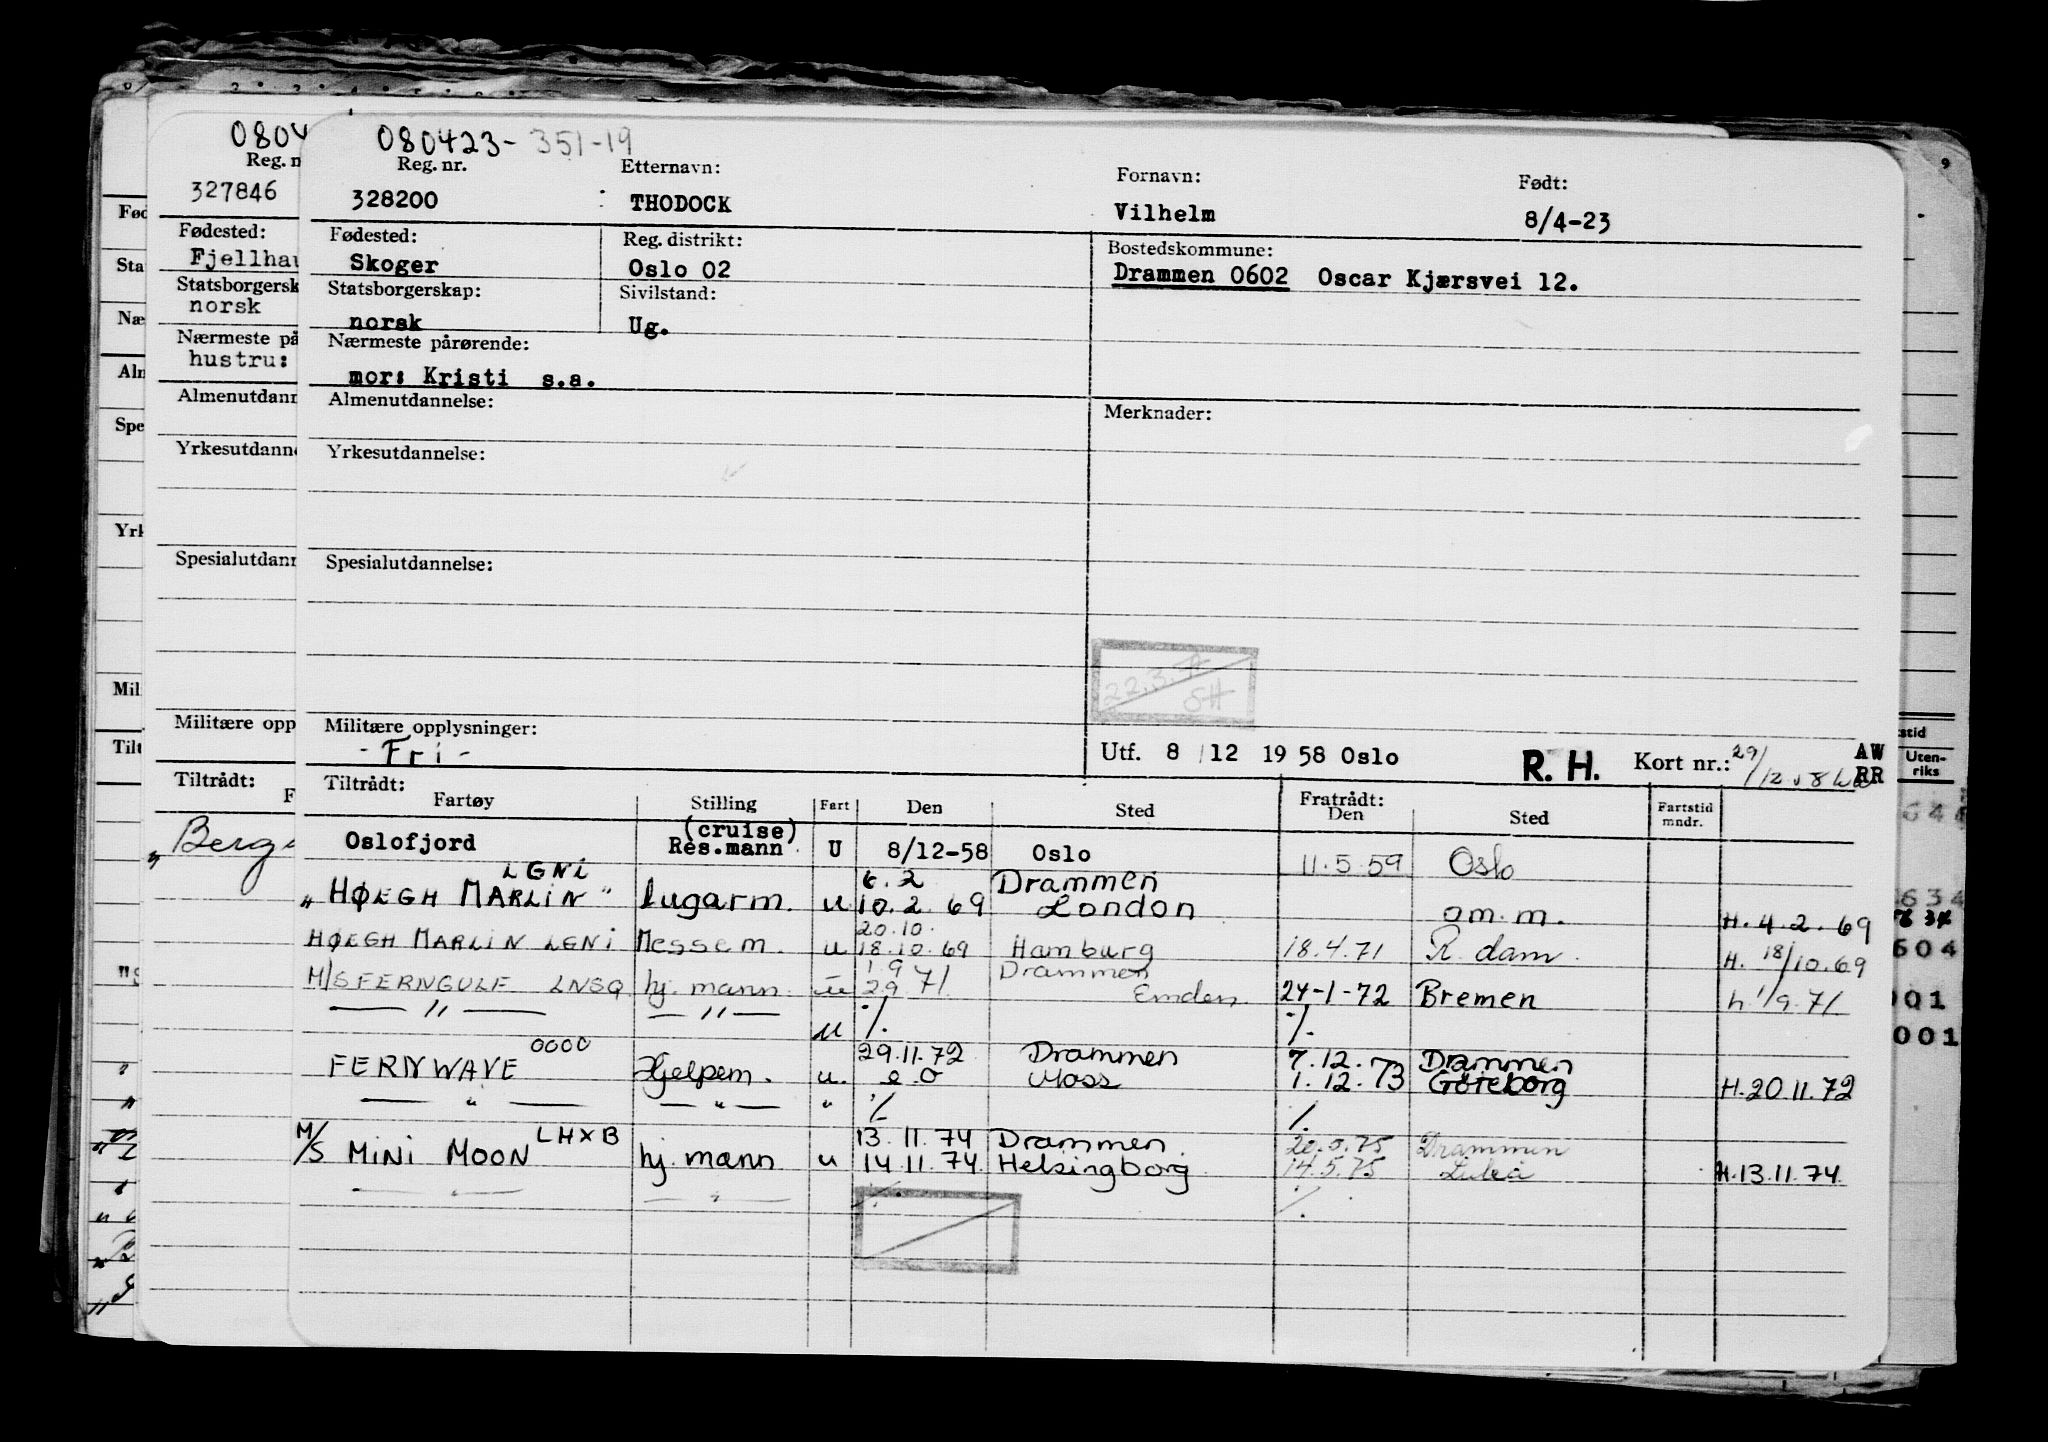 080423-351-19
Reg. nr. Etternavn: Fornavn: Født:
328200 THODOCK Vilhelm 8/4-23
Fødested: Reg. distrikt: Bostedskommune:
Skoger Oslo 02 Drammen 0602 Oscar Kjærsvei 12.
Statsborgerskap: Sivilstand:
norsk Ug.
Nærmeste pårørende:
mor: Kristi s.a.
Almenutdannelse: Merknader:
Yrkesutdannelse:
Spesialutdannelse:
22.3.
SH
Militære opplysninger:
- Fri - Utf. 8/12 1958 Oslo R. H. Kort nr.: 29/12 AW
RR
Tiltrådt: Fratrådt:
Fartøy Stilling Fart Den Sted Den Sted Fartstid mndr.
Oslofjord (cruise) Res.mann. U 8/12-58 Oslo 11.5.59 Oslo
LGNI 6.2 Drammen
"HØEGH MARLIN" lugarm. u 10.2.69 London om.m. H.4.2.69
20.10.
HØEGH MARLIN LGNI Messem. u 18.10.69 Hamburg 18.4.71 R.dam. H. 18/10.69
1.9 Drammen
M/S FERNGULF LNSQ hj. mann u 2.9 71 Emden 24-1-72 Bremen h. 1/9.71
— " — — " — u ./. ./.
0000 29.11.72 Drammen 7.12.73 Drammen
FERNWAVE Hjelpem. u. Moss 1.12.73 Göteborg H.20.11.72
— " — — " — " ./. ./.
LHXB 13.11.74 Drammen. Drammen
M/S MINI MOON hj. mann u 14.11.74 Helsingborg 14.5.75 Luleå H.13.11.74
— " — — " — ./. ./.
0804
Reg. n
327846
Fødested:
Fjellhau
Statsborgersk
norsk
Nærmeste på
hustru:
Almenutdann
Yrkesutdann
Spesialutdann
Militære opp
Tiltrådt:
F
Fød
Sta
Næ
Alm
Spe
Yrk
Mil
Tilt
stid
Uten-
riks
634
604
001
001